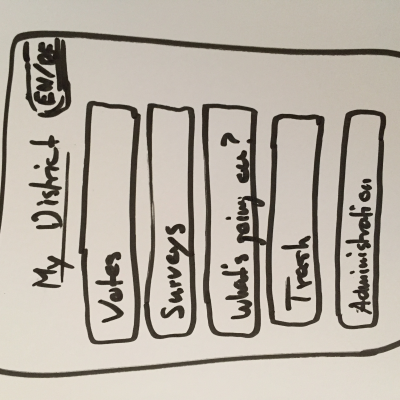 My District
EN/DE
Votes
Surveys
What's going on?
Trash
Administration